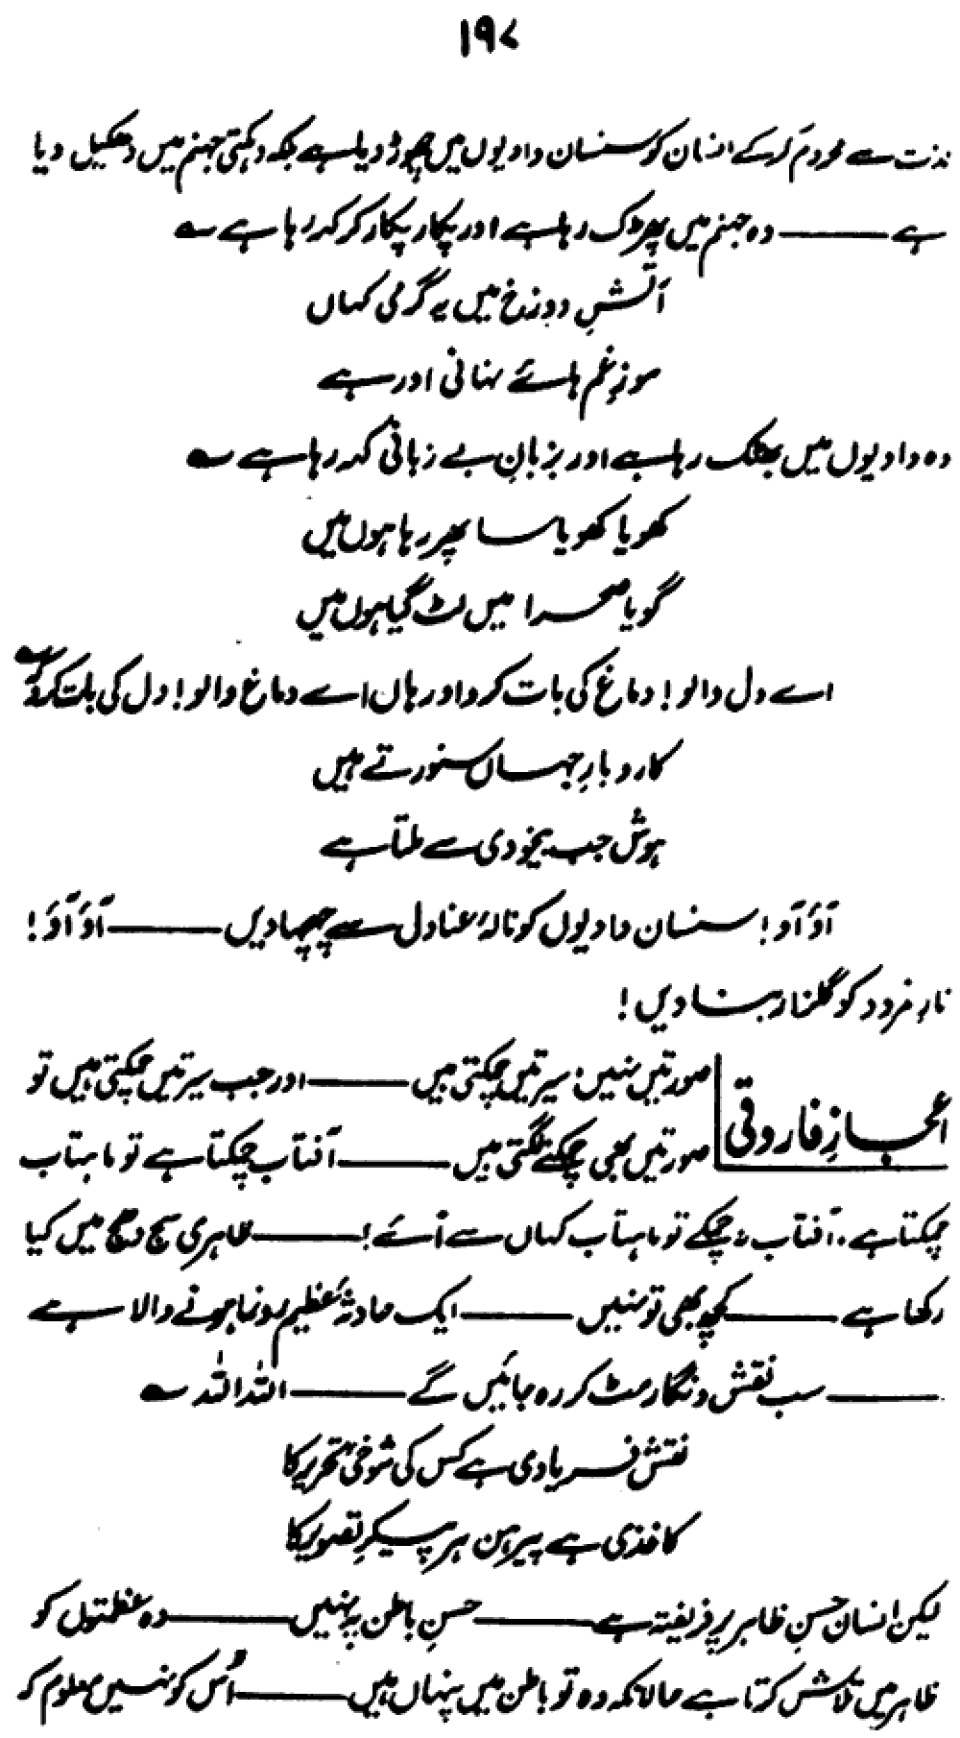 ۱۹۷
لذت سے محروم کر کے انسان کو سنسان وادیوں میں چھوڑ دیا ہے بلکہ دہکتی جہنم میں دھکیل دیا
ہے ——— وہ جہنم میں پھڑک رہا ہے اور پکار پکار کر کہہ رہا ہے ؎
آتشِ دوزخ میں یہ گرمی کہاں
سوزِ غم ہائے نہانی اور ہے
وہ وادیوں میں بھٹک رہا ہے اور بزبانِ بے زبانی کہہ رہا ہے ؎
کھویا کھویا سا پھر رہا ہوں میں
گویا صحرا میں لٹ گیا ہوں میں
اے دل والو! دماغ کی بات کرو اور ہاں اے دماغ والو! دل کی بات کرو ؎
کاروبارِ جہاں سنورتے ہیں
ہوش جب بیخودی سے ملتا ہے
آؤ آؤ! سنسان وادیوں کو نالۂ عنادل سے چہچہا دیں ——— آؤ آؤ!
نارِ نمرود کو گلنار بنا دیں!
اعجازِ فاروقی
صورتیں نہیں، سیرتیں چمکتی ہیں ——— اور جب سیرتیں چمکتی ہیں تو
صورتیں بھی چمکنے لگتی ہیں ——— آفتاب چمکتا ہے تو ماہتاب
چمکتا ہے، آفتاب نہ چمکے تو ماہتاب کہاں سے آئے! ——— ظاہری سج دھج میں کیا
رکھا ہے ——— کچھ بھی تو نہیں ——— ایک حادثۂ عظیم رونما ہونے والا ہے
——— سب نقش و نگار مٹ کر رہ جائیں گے ——— اللہ اللہ ؎
نقش فریادی ہے کس کی شوخیٔ تحریر کا
کاغذی ہے پیرہن ہر پیکرِ تصویر کا
لیکن انسان حسنِ ظاہر پر فریفتہ ہے ——— حسنِ باطن پہ نہیں ——— وہ عظمتوں کو
ظاہر میں تلاش کرتا ہے حالانکہ وہ تو باطن میں پنہاں ہیں ——— اُس کو نہیں معلوم کہ